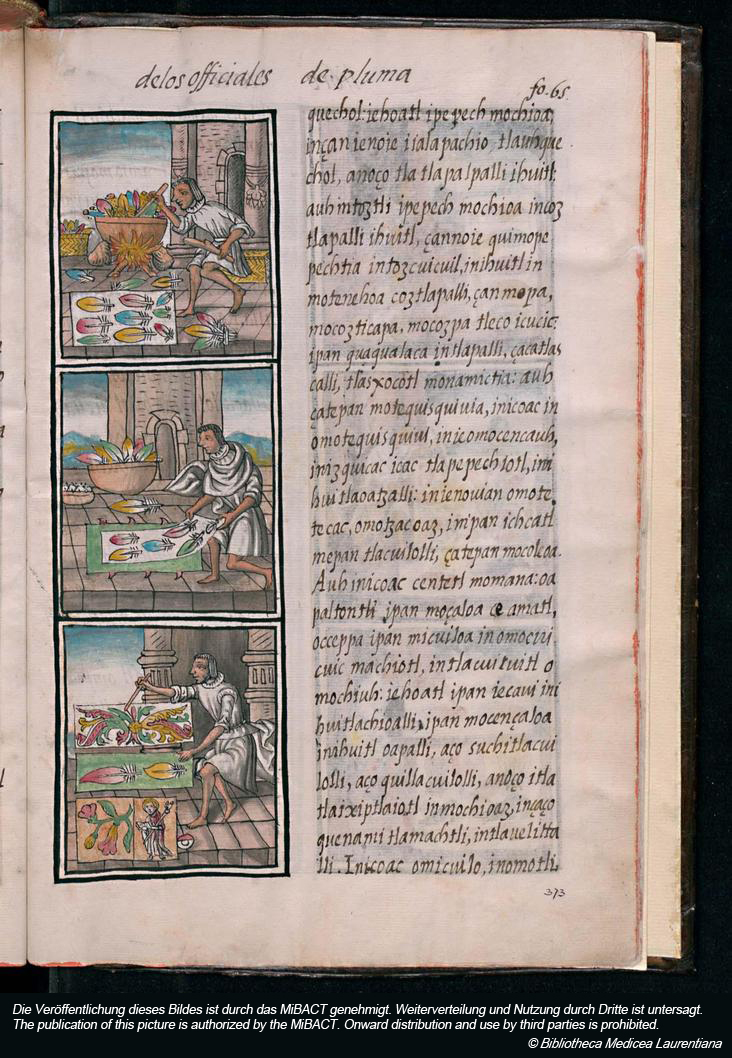 delos officiales de pluma
fo. 65
quechol: iehoatl ipepech mochioa,
inçan ienoie iialapachio, tlauhque
chol, anoço tla tlapalpalli ihuitl:
auh intoztli ipepech mochioa incoz
tlapalli ihuitl, çannoie quimope
pechtia intozcuicuil, inihuitl in
motenehoa coztlapalli, çan mopa,
mocozticapa, mocozpa tleco icucic:
ipan quaqualaca in tlapalli, çacatlas
calli, tlasxocotl monamictia: auh
çatepan motequisquiuia, inicoac in
omotequisquiui, inic omocencauh,
inizquicac icac tlapepechiotl, ini
huitlaoatzalli: inienouian omote
tecac, omotzacoaz, inipan ichcatl
mepan tlacuilolli, çatepan mocolcoa.
Auh inicoac centetl momana: oa
paltontli ipan moçaloa ce amatl,
occeppa ipan micuiloa in omocui
cuic machiotl, in tlacuiluitl o
mochiuh: iehoatl ipan iecaui ini
huitlachioalli, ipan mocencaoa
inihuitl oapalli, aço suchitlacui
lolli, aço quillacuilolli, anoço itla
tlaixiptlaiotl inmochioaz, inçaço
quenami tlamachtli, intlauelitta
lli. Inicoac omicuilo, inomotli,
373
Die Veröffentlichung dieses Bildes ist durch das MiBACT genehmigt. Weiterverteilung und Nutzung durch Dritte ist untersagt.
The publication of this picture is authorized by the MiBACT. Onward distribution and use by third parties is prohibited.
© Bibliotheca Medicea Laurentiana